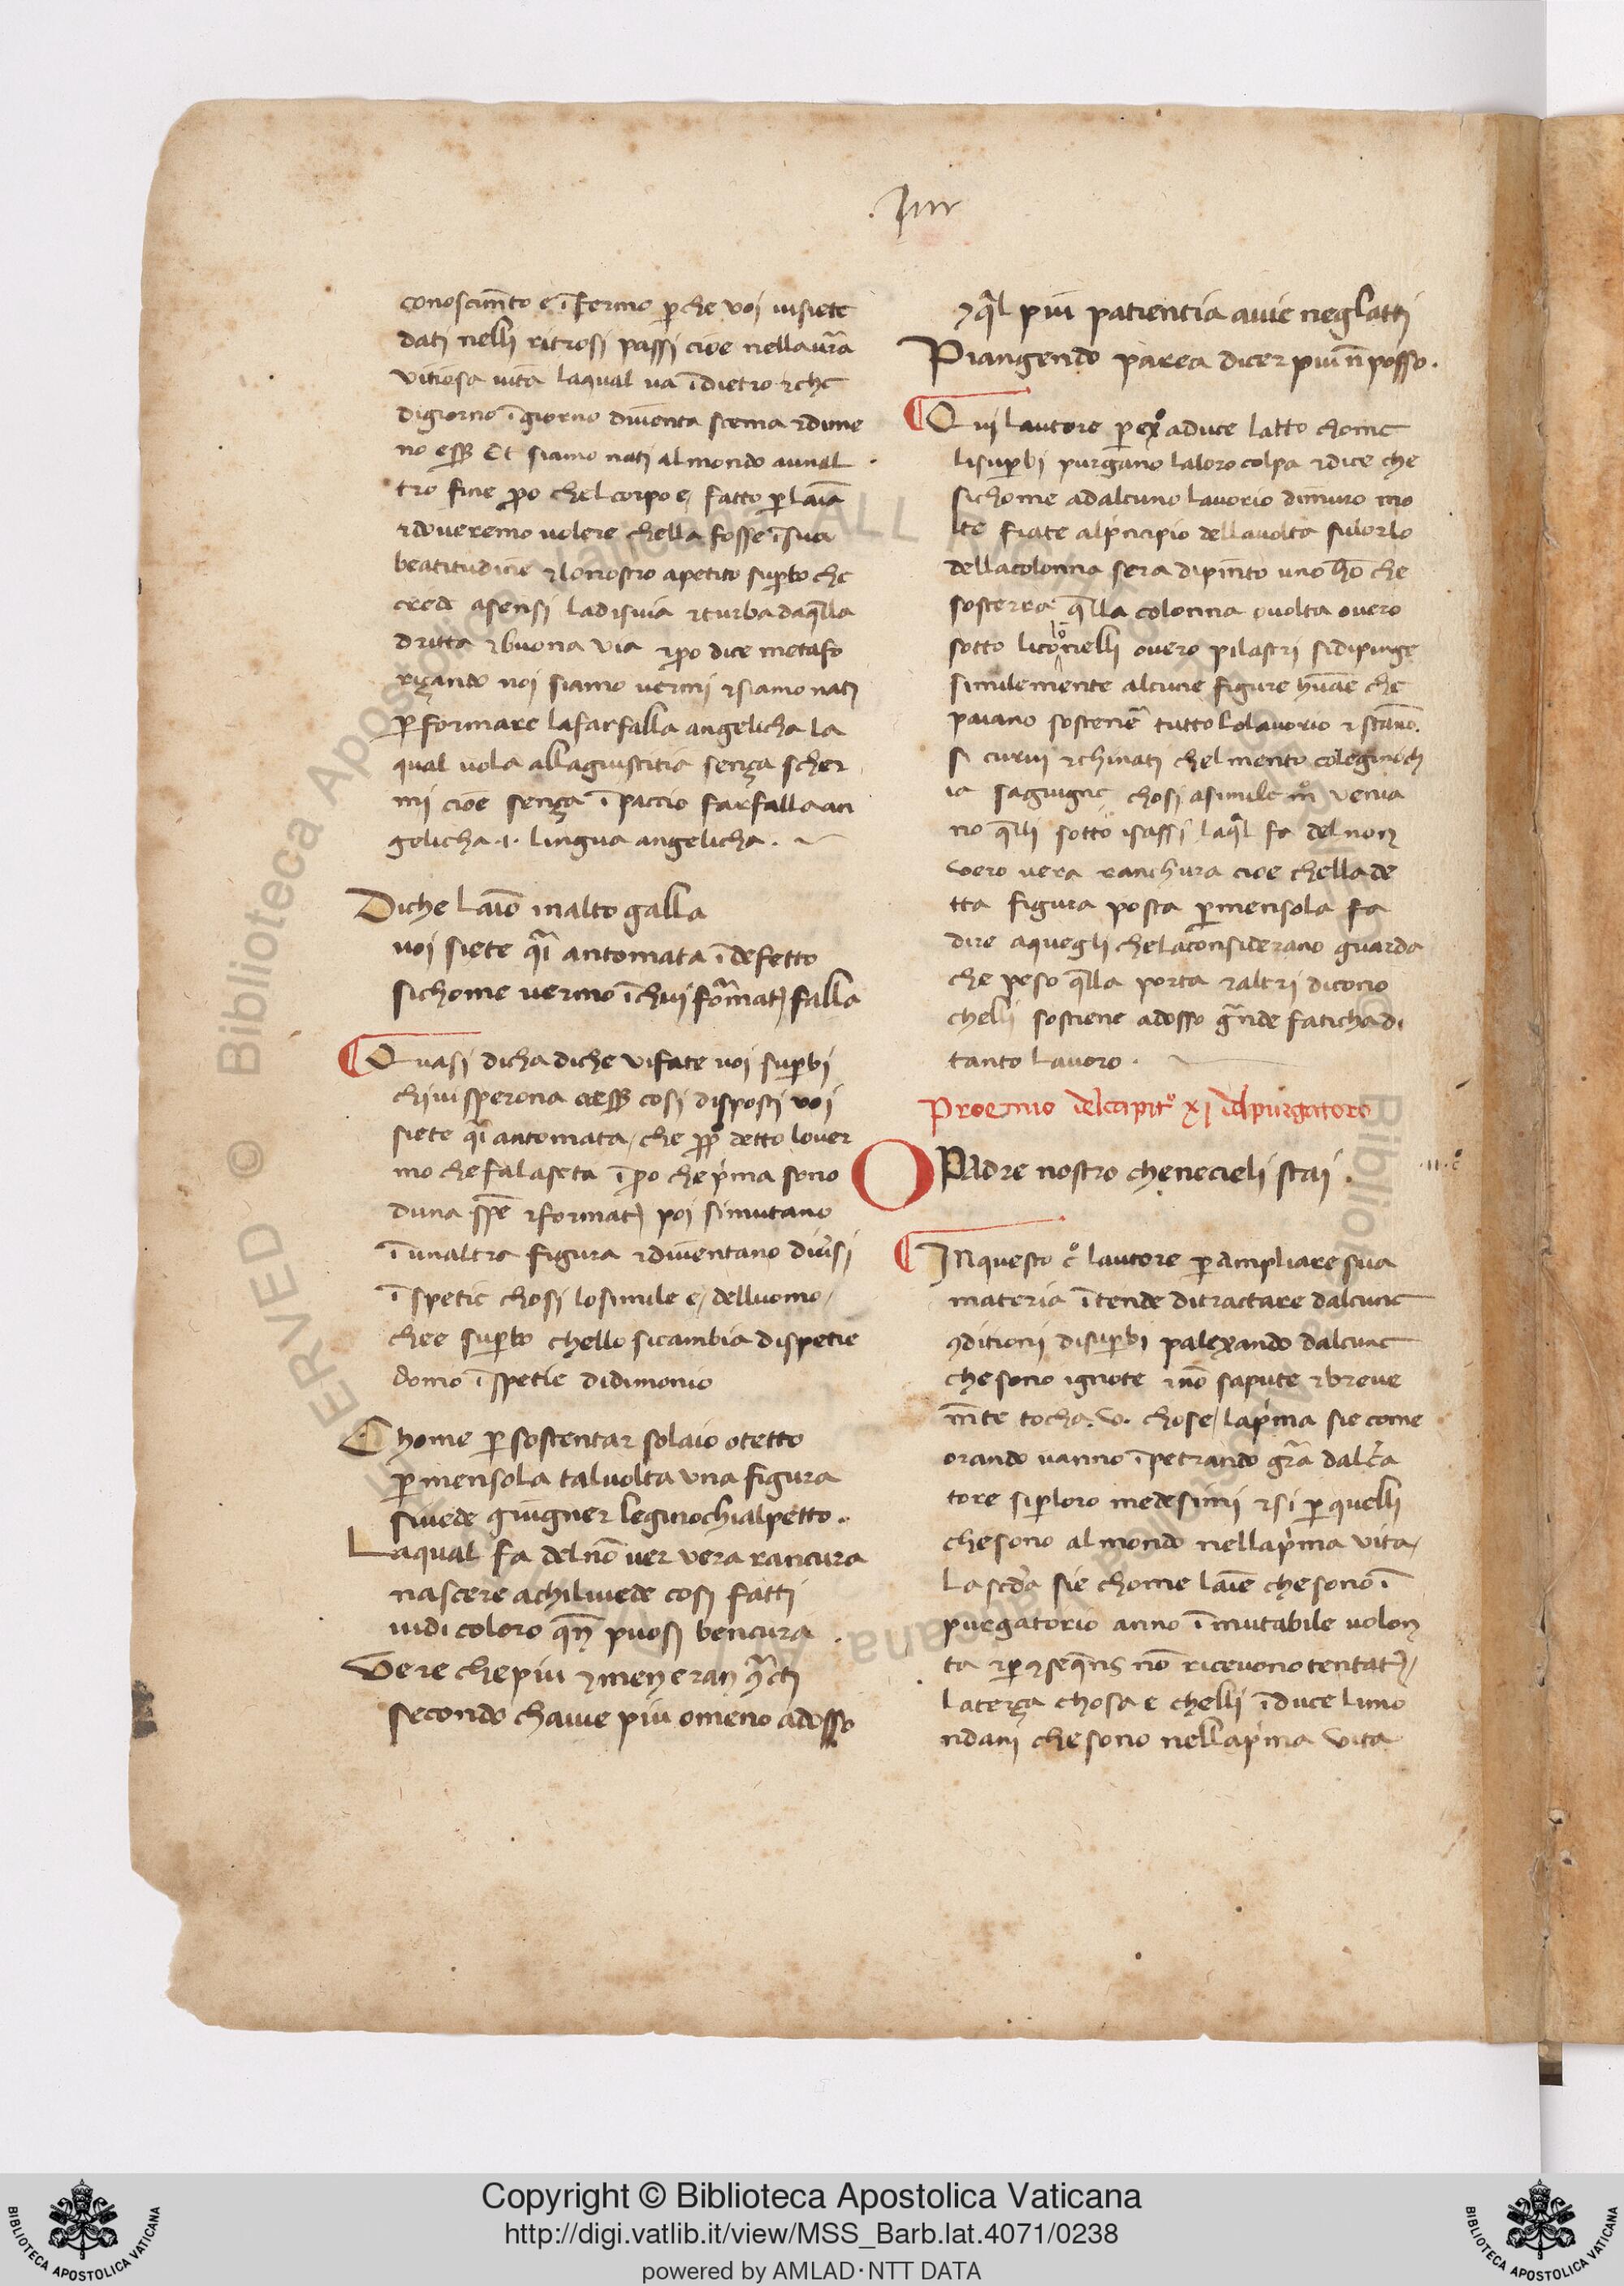 .Iııı
conoscim̄to e īfermo ꝑche voi uisiete
dati nelli ritrosi passi cioe nella ur̄a
vitiosa uita laqual ua īdietro ⁊ che
digiorno īgiorno diuenta scema ⁊ diuie
no ess̄ Et siamo nati al mondo aunal
tro fine ꝑo chel corpo e fatto ꝑ laīa
⁊ doueremo uolere chella fosse ī sua
beatitudine ⁊ lo nostro apetito suꝑbo che
crede asensi la disuia ⁊ turba daq̄lla
dritta ⁊ buona via ⁊ ꝑo dice metafo
riçando noi siamo uermi ⁊ siamo nati
ꝑ formare lafarfalla angelicha la
qual uola alla giustitia sença scher
mi cioe sença īpaccio farfalla an
gelicha .i. lingua angelicha.
Diche laīo inalto galla
uoi siete q̄i antomata ī defetto
sichome uermo ī chui formatꝫ falla
Quasi dicha diche vifate uoi suꝑbi
chi ui sperona aess̄ cosi disposti voi
siete q̄i antomata, che ꝓp detto louer
mo che fa laseta īꝑo che pᵢma sono
duna spē ⁊ formatꝫ poi simutano
ī unaltra figura ⁊ diuentano diuˀsi
ī spetie chosi losimile e delluomo
chee suꝑbo chello sicambia dispetie
domo ī spetie didimonio
Chome ꝑ sostentar solaio o tetto
ꝑ mensola taluolta una figura
siuede giugner leginochi alpetto.
Laqual fa del nō ver vera rancura
nascere achiluede cosi fatti
uidi coloro qn̄ puosi bencura
Vere che piu ⁊ men eran ꝯtˀcti
secondo chauie piu o meno adosso
⁊ q̄l piu patientia auie neglatti
Piangendo parea dicer piu n̄ posso.
Qui lautore ꝑ exº aduce latto chome
lisuꝑbi purgano laloro colpa ⁊ dice che
sichome adalcuno lauorio dimuro mo
lte fiate alpncipio della uolta sulorlo
della colonna sera dipinto uno hō che
sosterra q̄lla colonna o uolta ouero
sotto licolōnelli ouero pilastri sidipinge
similemente alcune figure huāe che
paiano sostenēr tutto lo lauorio ⁊ stāno.
si curui ⁊ chinati chel mento coleginoch
ia sagiugne chosi asimile mº venia
no q̄lli sotto isassi laq̄l fa del non
vero uera ranchura cioe chella de
tta figura posta ꝑ mensola fa
dire aquegli chela considerano guarda
che peso q̄lla porta ⁊ altri dicono
chelli sostiene adosso grāde faticha di
tanto lauoro.
Proemio del capitº xj del purgatoro
O PAdre nostro che necieli stai .
.ıı.cº
INquesto cº lautore ꝑ ampliare sua
materia ītende ditractare dalcune
ꝯditioni disuꝑbi palexando dalcune
che sono ignote ⁊ nō sapute ⁊ breue
m̄te tocha .v. chose, lapᵢma sie come
orando uanno īpetrando grā dalcˀa
tore si ꝑloro medesimi ⁊ si ꝑ quelli
che sono al mondo nella pᵢma vita,
La scd̄a sie chome laīe che sono ī
purgatorio anno īmutabile uolon
ta ⁊ ꝑ ꝯseq̄ns nō riceuono tentatꝫ,
laterça chosa e chelli īduce limo
ndani che sono nella pᵢma vita
© Biblioteca Apostolica Vaticana ALL RIGHTS RESERVED
Copyright © Biblioteca Apostolica Vaticana
http://digi.vatlib.it/view/MSS_Barb.lat.4071/0238
powered by AMLAD·NTT DATA
BIBLIOTECA APOSTOLICA VATICANA
BIBLIOTECA APOSTOLICA VATICANA